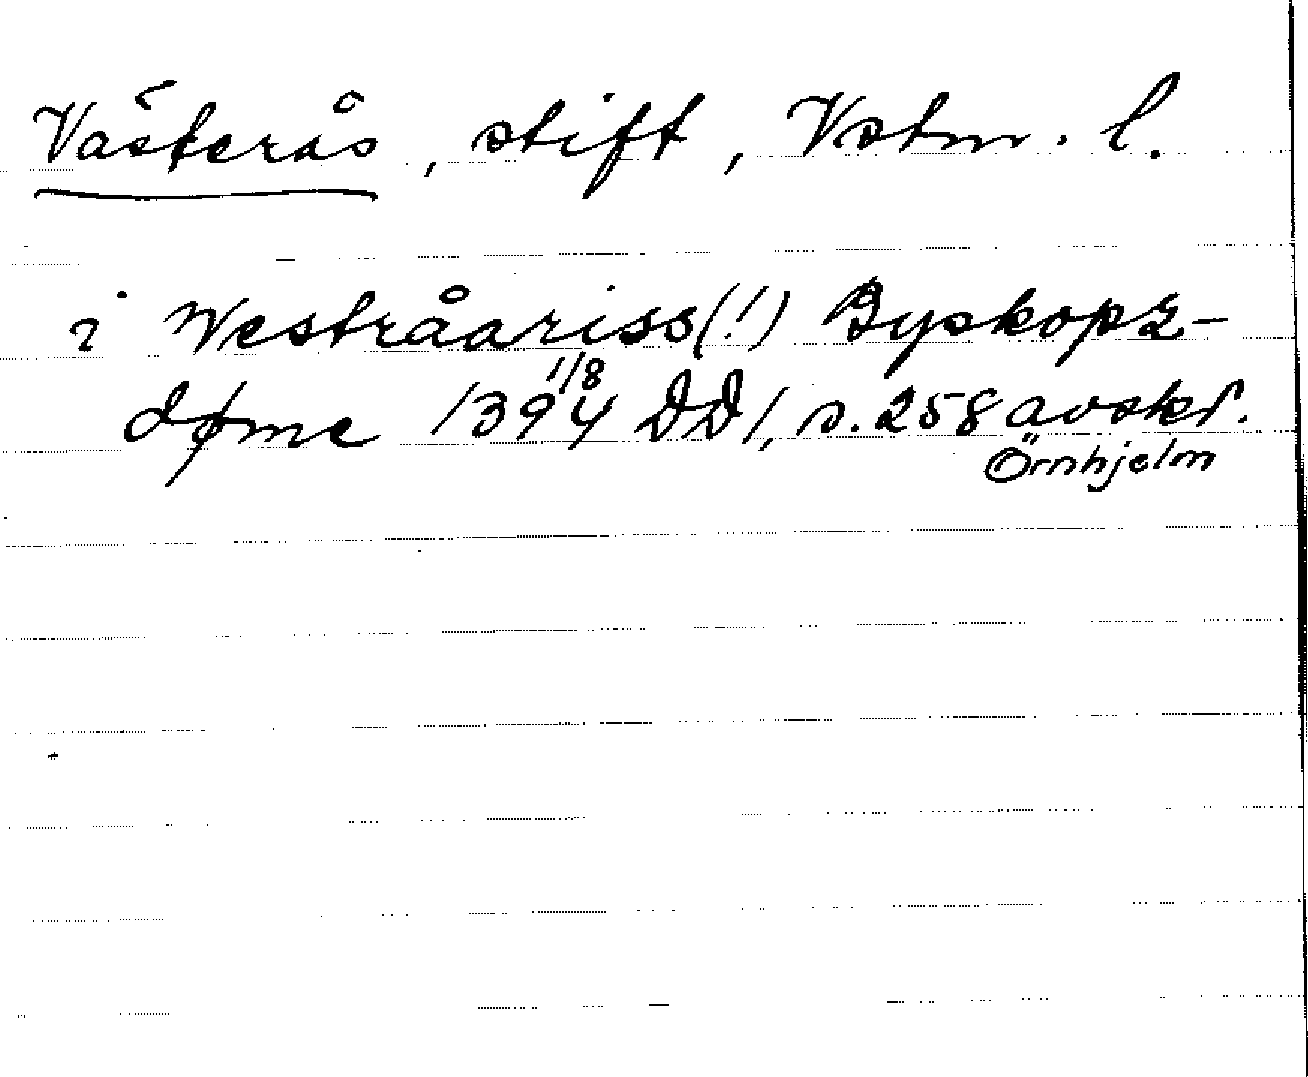 Västerås, stift, Vstm. l.
i Westråariss(!) Byskopz-
1/8
døme 1394 DD1, s. 258 avskr.
Örnhjelm